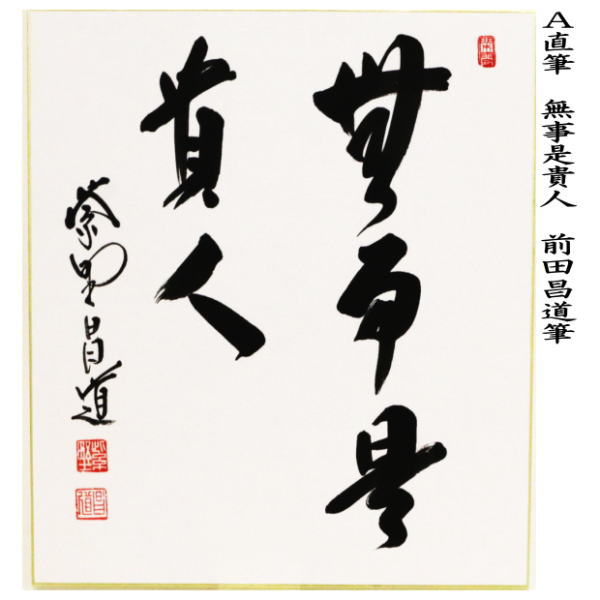 A直筆　無事是貴人　前田昌道筆
無事是
貴人
紫野昌道